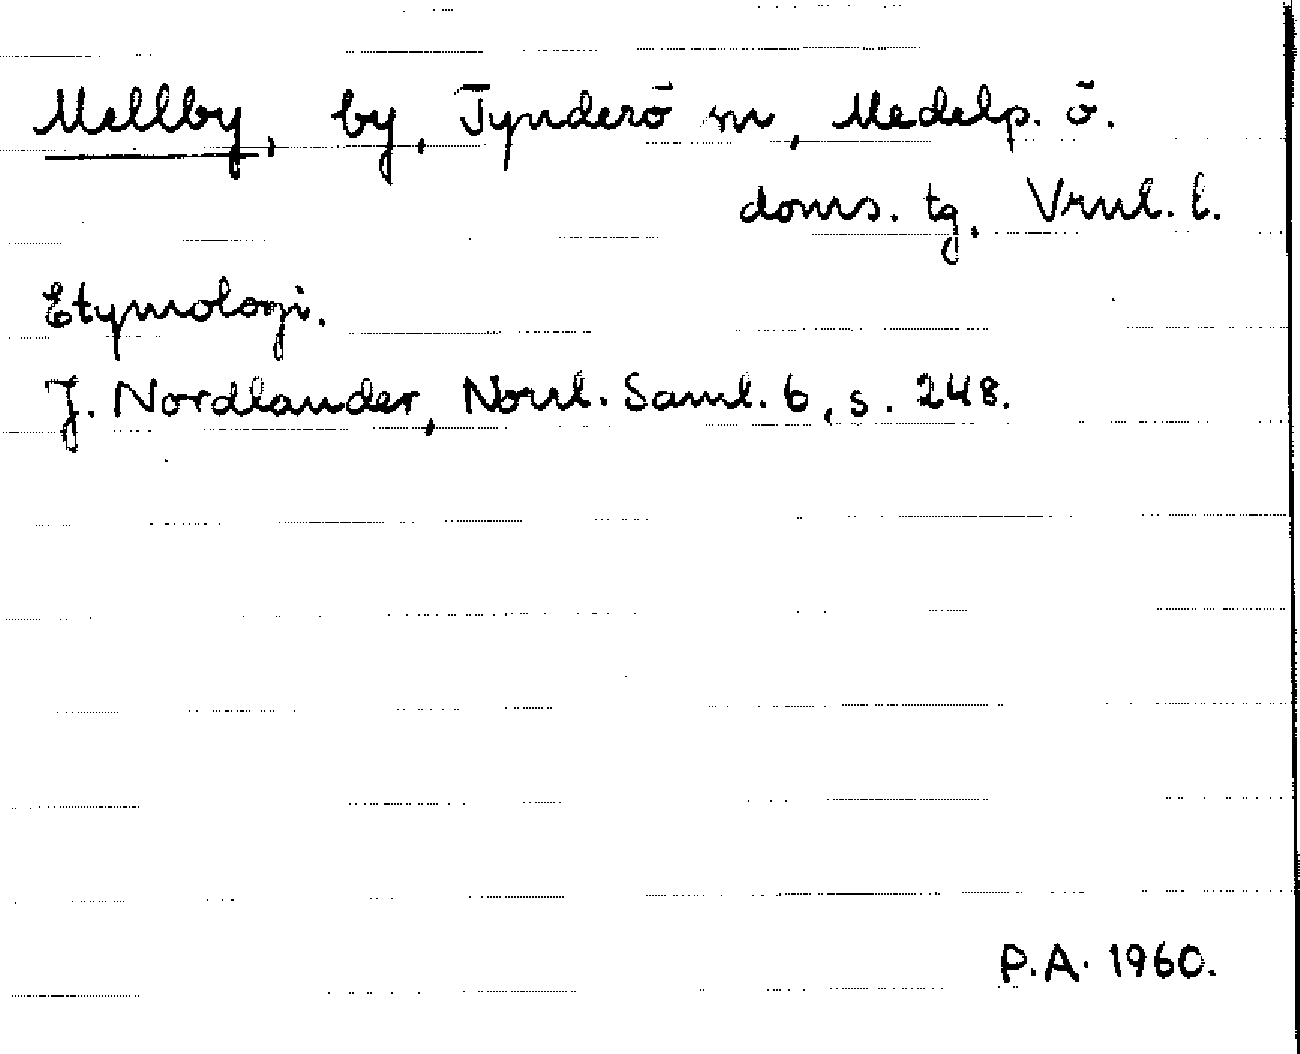 Mellby, by, Tynderö sn, Medelp. ö.
doms. tg, Vrnl. l.
Etymologi.
J. Nordlander, Norrl. Saml. 6, s. 248.
P.A. 1960.